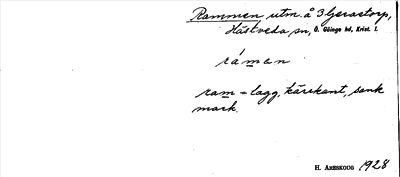 Rammen utm. å 3 Gerastorp,
Hästveda sn, Ö. Göinge hd, Krist. l.
råmen
ram = lagg, kärrkant, sank
mark.
H. Areskoog 1928